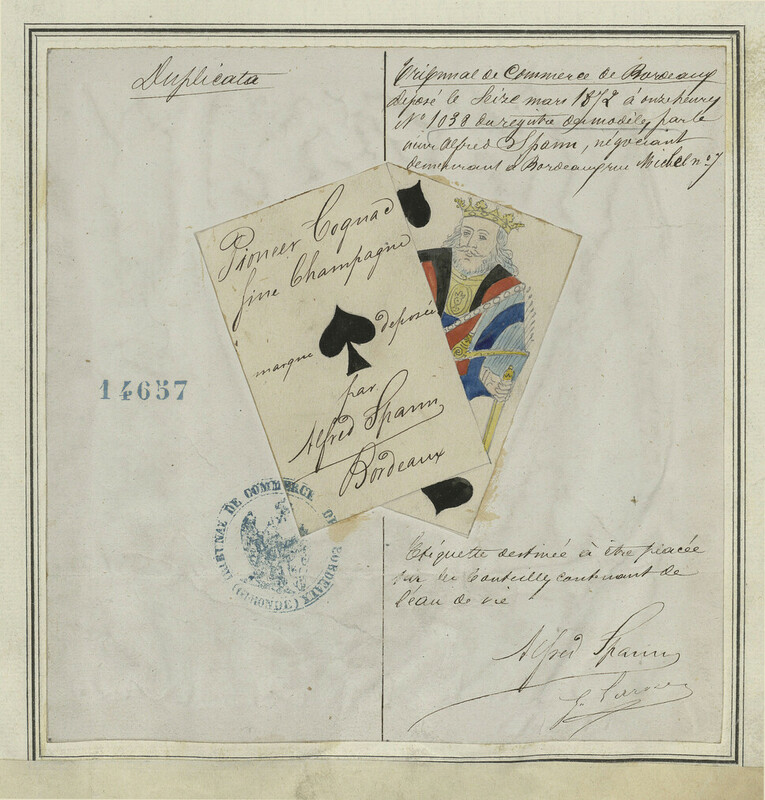 Duplicata
Tribunal de Commerce de Bordeaux
déposé le Seize mars 1872 à onze heures
No 1038 du registre des modèles, par le
sieur Alfred Spann, négociant
demeurant à Bordeaux rue Michel no 7
Pioneer Cognac
fine Champagne
marque deposée
par
Alfred Spann
Bordeaux
14657
TRIBUNAL DE COMMERCE DE BORDEAUX
(GIRONDE)
Etiquette destinée à être placée
sur les bouteilles contenant de
l'eau de vie
Alfred Spann